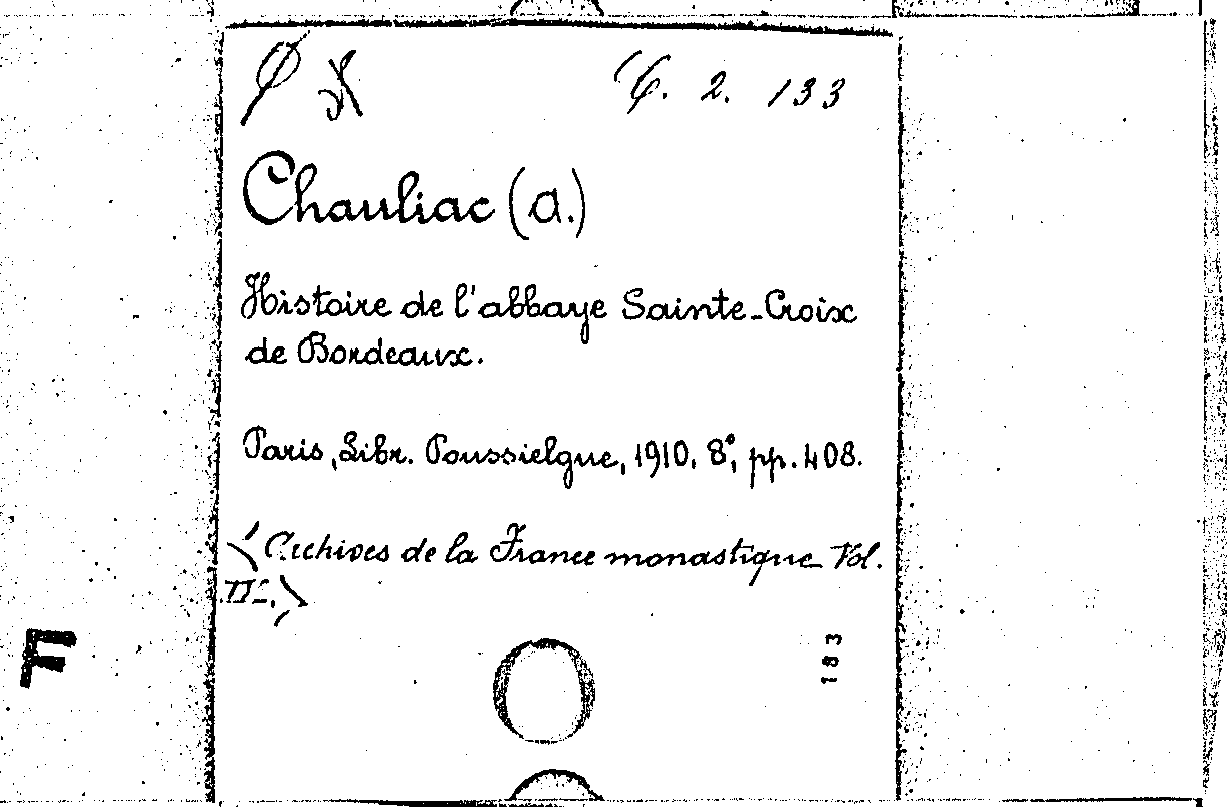 C. 2. 133
Chauliac (A.)
Histoire de l'abbaye Sainte-Croix
de Bordeaux.
Paris, Libr. Poussielgue, 1910. 8°, pp. 408.
Archives de la France monastique Vol.
183
F